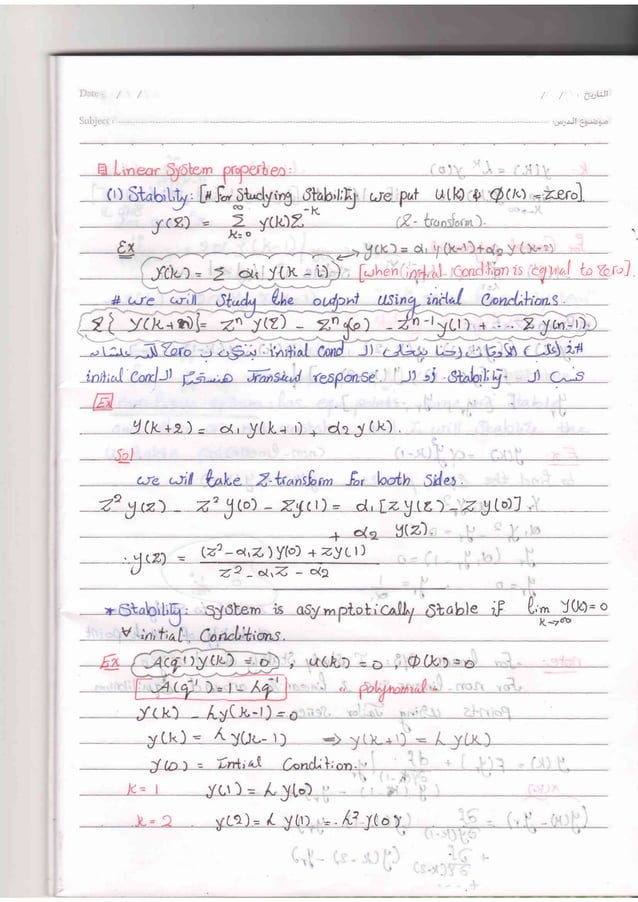 Date: / / / / التاريخ
Subject: موضوع الدرس
Linear System properties:
(1) Stability: [# for studying Stability we put u(k) & Φ(k) = zero].
y(z) = Σ_{k=0}^{∞} y(k)z^{-k} (z-transform).
Ex y(k) = α₁ y(k-1)+α₂ y(k-2)
y(k) = Σ αᵢ y(k-i) [when initial condition is equal to zero].
# we will study the output using initial Conditions.
Z{y(k+n)} = zⁿ y(z) - zⁿ y(0) - zⁿ⁻¹ y(1) + ... z y(n-1).
initial Cond. الـ zero
initial Cond الـ Transient response الـ stability الـ
Ex
y(k+2) = α₁ y(k+1) + α₂ y(k).
Sol
we will take z-transform for both sides
z² y(z) - z² y(0) - z y(1) = α₁ [z y(z) - z y(0)]
+ α₂ y(z).
∴ y(z) = ((z²-α₁z) y(0) + z y(1)) / (z² - α₁z - α₂)
* Stability: system is asymptotically stable if lim_{k→∞} y(k) = 0
∀ initial Conditions.
Ex A(q⁻¹) y(k) = 0, u(k) = 0, Φ(k) = 0
A(q⁻¹) = 1 - λq⁻¹ polynomial
y(k) - λy(k-1) = 0
y(k) = λ y(k-1) ⇒ y(k+1) = λ y(k)
y(0) = Initial Condition.
k = 1 y(1) = λ y(0)
k = 2 y(2) = λ y(1) = λ² y(0)